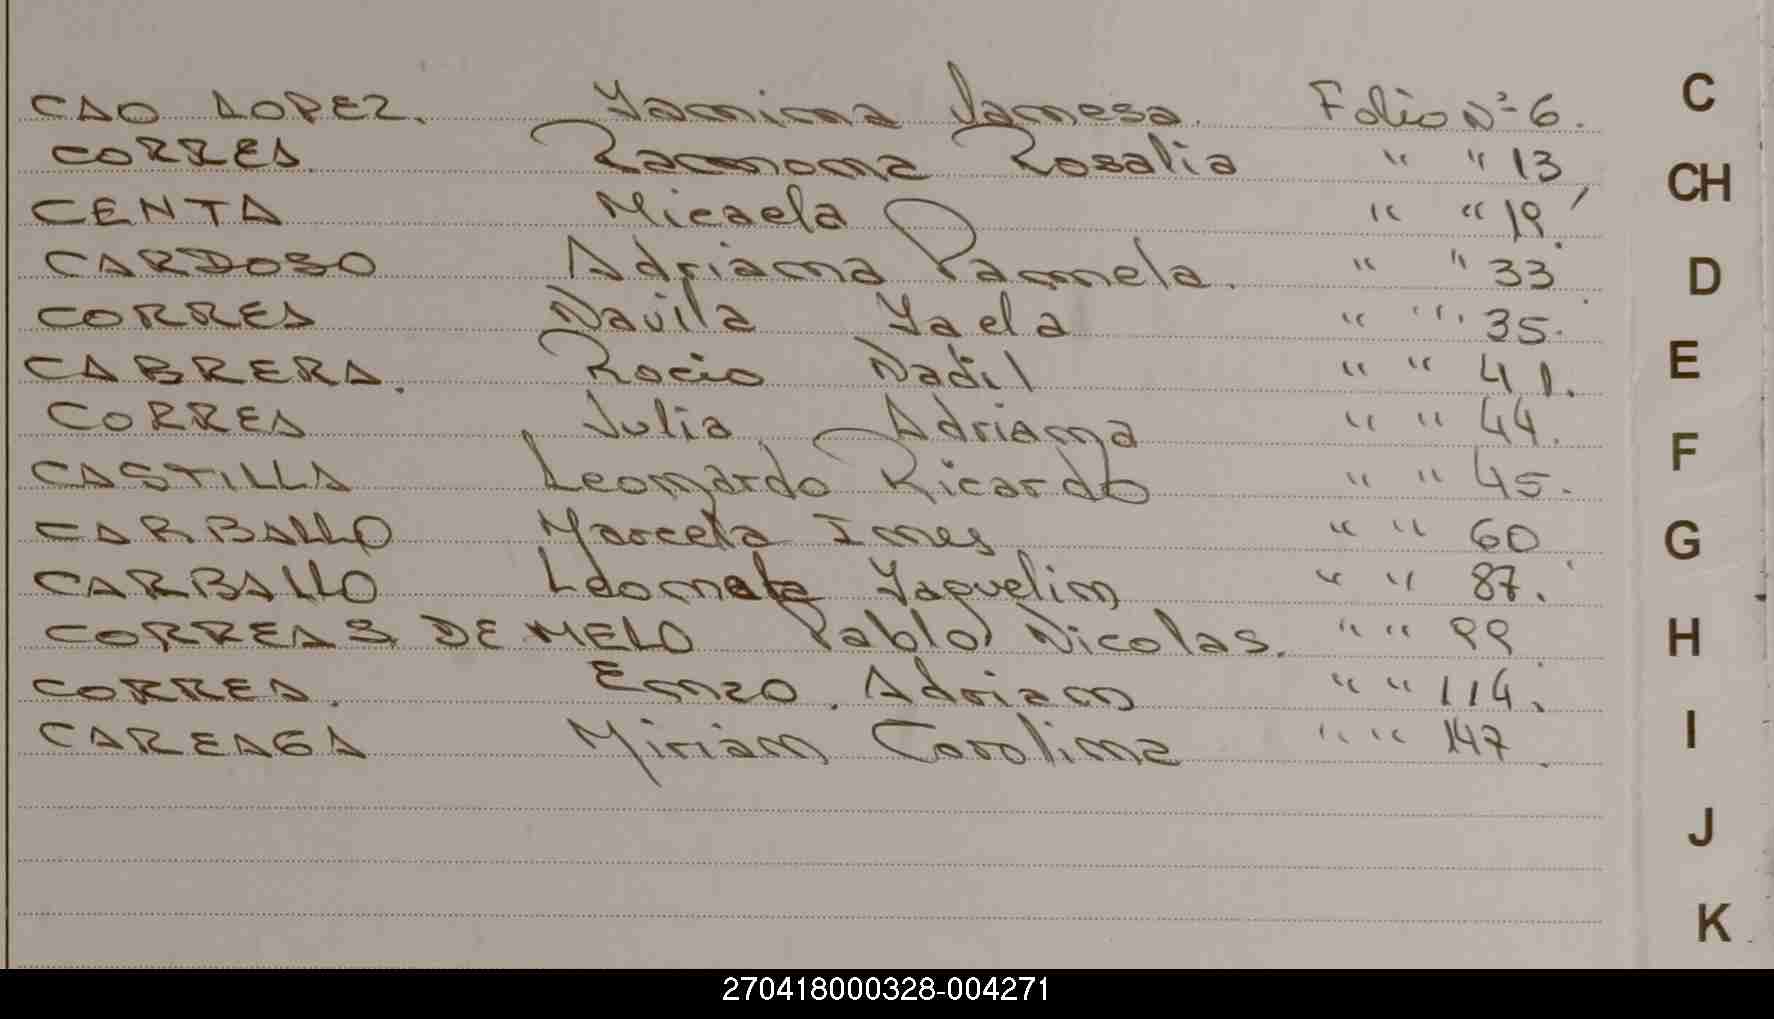 CAO LOPEZ. Yamina Vanesa. Folio Nº 6.
CORREA. Ramona Rosalia " " 13
CENTA Micaela " " 19
CARDOSO Adriana Pamela. " " 33
CORREA Davila Yaela " " 35.
CABRERA. Rocio Nadil " " 41.
CORREA Julia Adriana " " 44.
CASTILLA Leonardo Ricardo " " 45.
CARBALLO Marcela Ines " " 60
CARBALLO Yaquelin " " 87.
CORREAS DE MELO Pablo Nicolas. " " 99
CORREA. Enzo. Adrian " " 114.
CAREAGA Miriam Carolina " " 147.
C
CH
D
E
F
G
H
I
J
K
270418000328-004271